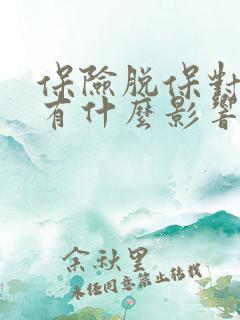 保險脫保對
有什麼影響
余秋里
未經同意禁止轉載